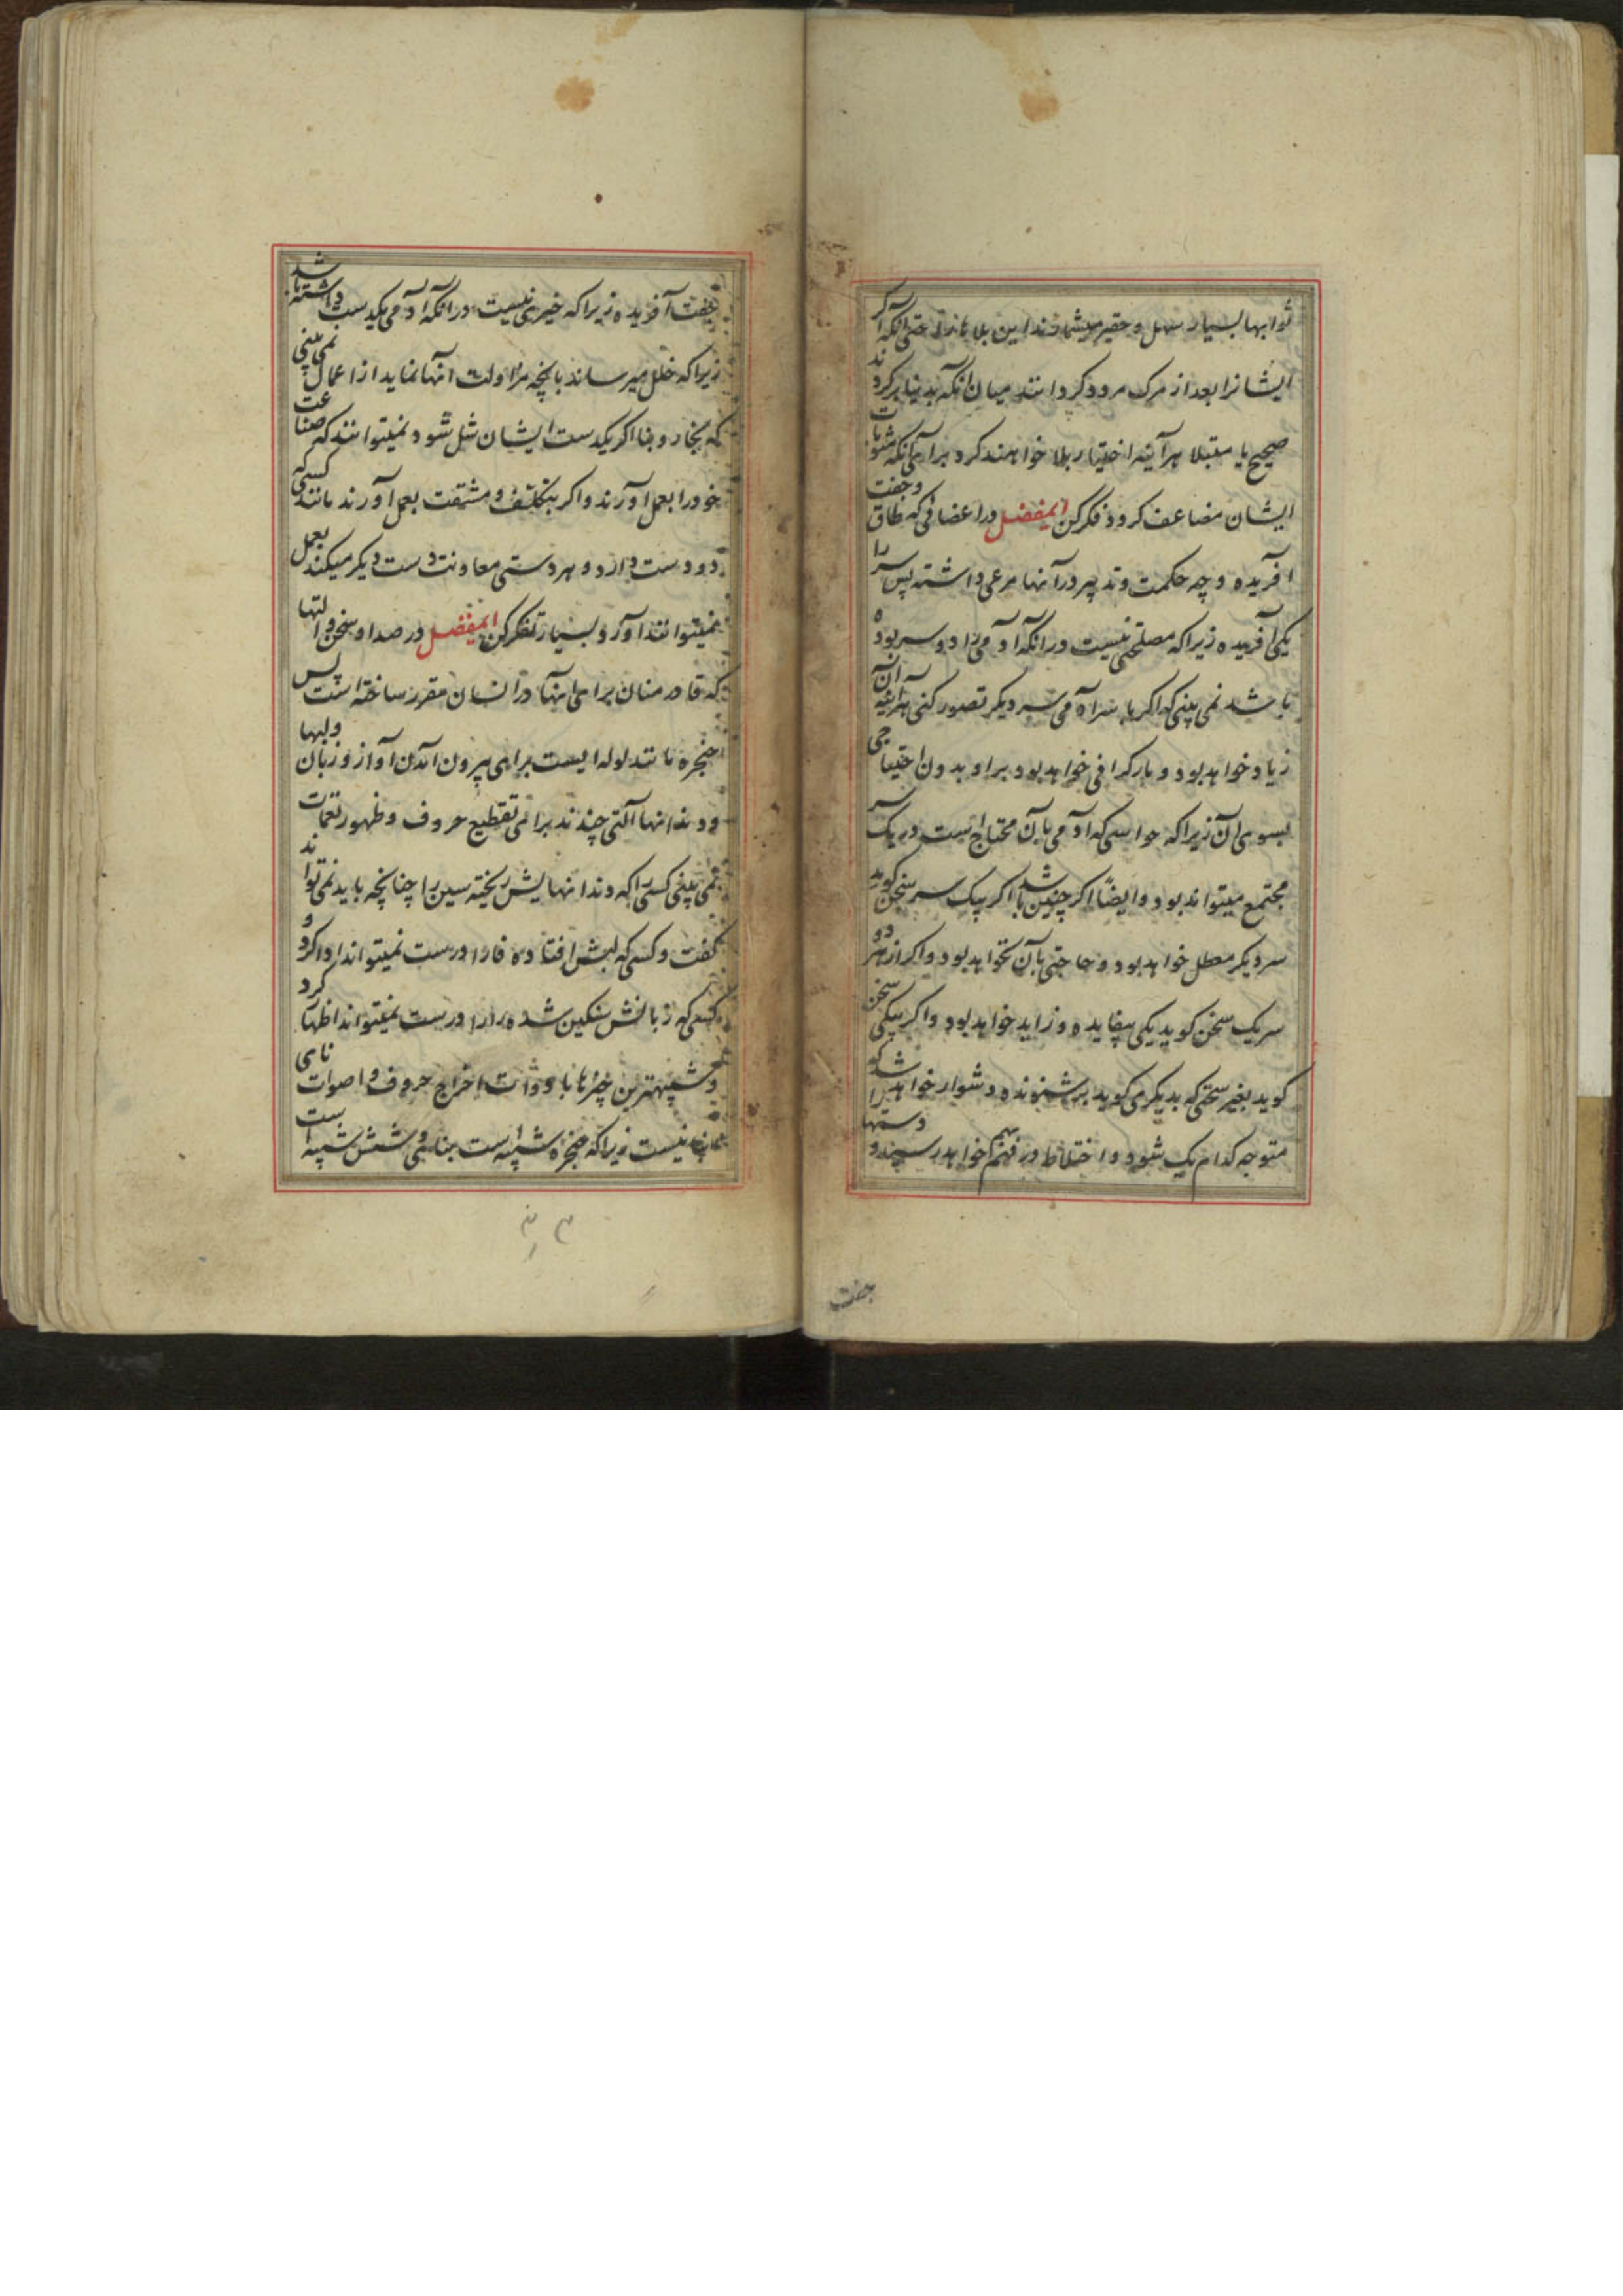 ثوابها بسیار سهل و حقیر میشمارند این بلاها را حتی آنکه اگر
ایشانرا بعد از مرک مردد کردانند میان آنکه بدنیا برکردند
صحیح یا مبتلا هرآینه اختیار بلا خواهند کرد برای آنکه مثوبات
ایشان مضاعف کردد فکر کن ایمفضل در اعضائی که طاق و جفت
آفریده و چه حکمت و تدبیر در آنها مرعی داشته پس سر را
یکی آفریده زیرا که مصلحتی نیست در آنکه آدمی را دو سر بوده
باشد نمی بینی که اکر با سر آدمی سر دیکر تصور کنی هرآینه آن
زیاد خواهد بود و بار کرانی خواهد بود بر او بدون احتیاجی
بسوی آن زیرا که حواسی که آدمی بآن محتاج است در یک سر
مجتمع میتواند بود و ایضاً اکر چنین باشد اکر بیک سر سخن کوید
سر دیکر معطل خواهد بود و حاجتی بآن نخواهد بود و اکر از هر دو
سر یک سخن کوید یکی بیفایده و زاید خواهد بود و اکر بیکی سخن
کوید بغیر سخنی که بدیکری کوید بر شنونده دشوار خواهد شد که
متوجه کدام یک شود و اختلاط در فهم خواهد رسید و دستها را
جفت
جفت آفریده زیرا که خیری نیست در آنکه آدمی یکدست داشته باشد
زیرا که خلل میرساند بانچه مزاولت آنها نماید از اعمال نمی بینی
که نجار و بنا اکر یکدست ایشان شل شود نمیتوانند که صناعت
خود را بعمل آورند و اکر بتکلف و مشقت بعمل آورند مانند کسی که
دو دست دارد و هر دستی معاونت دست دیکر میکند بعمل
نمیتوانند آورد بسیار تفکر کن ایمفضل در صدا و سخن و آلتها
که قادر منان برای اینها در انسان مقرر ساخته است پس
حنجره مانند لوله ایست برای بیرون آمدن آواز و زبان و لبها
و دندانها آلتی چندند برای تقطیع حروف و ظهور نغمات
نمی بینی کسی را که دندانهایش ریخته سین را چنانچه باید نمی تواند
کفت و کسی که لبش افتاده فا را درست نمیتواند ادا کرد و
کسی که زبانش سنکین شده را را درست نمیتواند اظهار کرد
و شبیهترین چیزها بادوات اخراج حروف و اصوات نای
انبانیست زیرا که حنجره شبیه است بنای و شش شبیه است